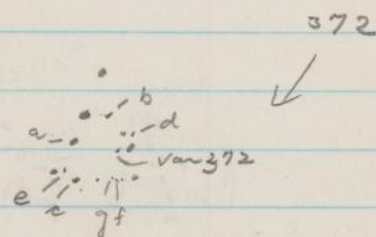 372
b
a d
var 372
e c
g f